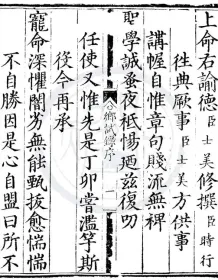 上命右諭德臣士美修撰臣時行
徃典厥事臣士美方供事
講幄自惟章句賤流無裨
聖學誠蚤夜祗惕廼茲復叨
鄉試錄序
任使又惟先是丁卯嘗濫竽斯
役今再承
寵命深懼闇劣無能甄拔愈惴惴
不自勝因是心自盟曰所不